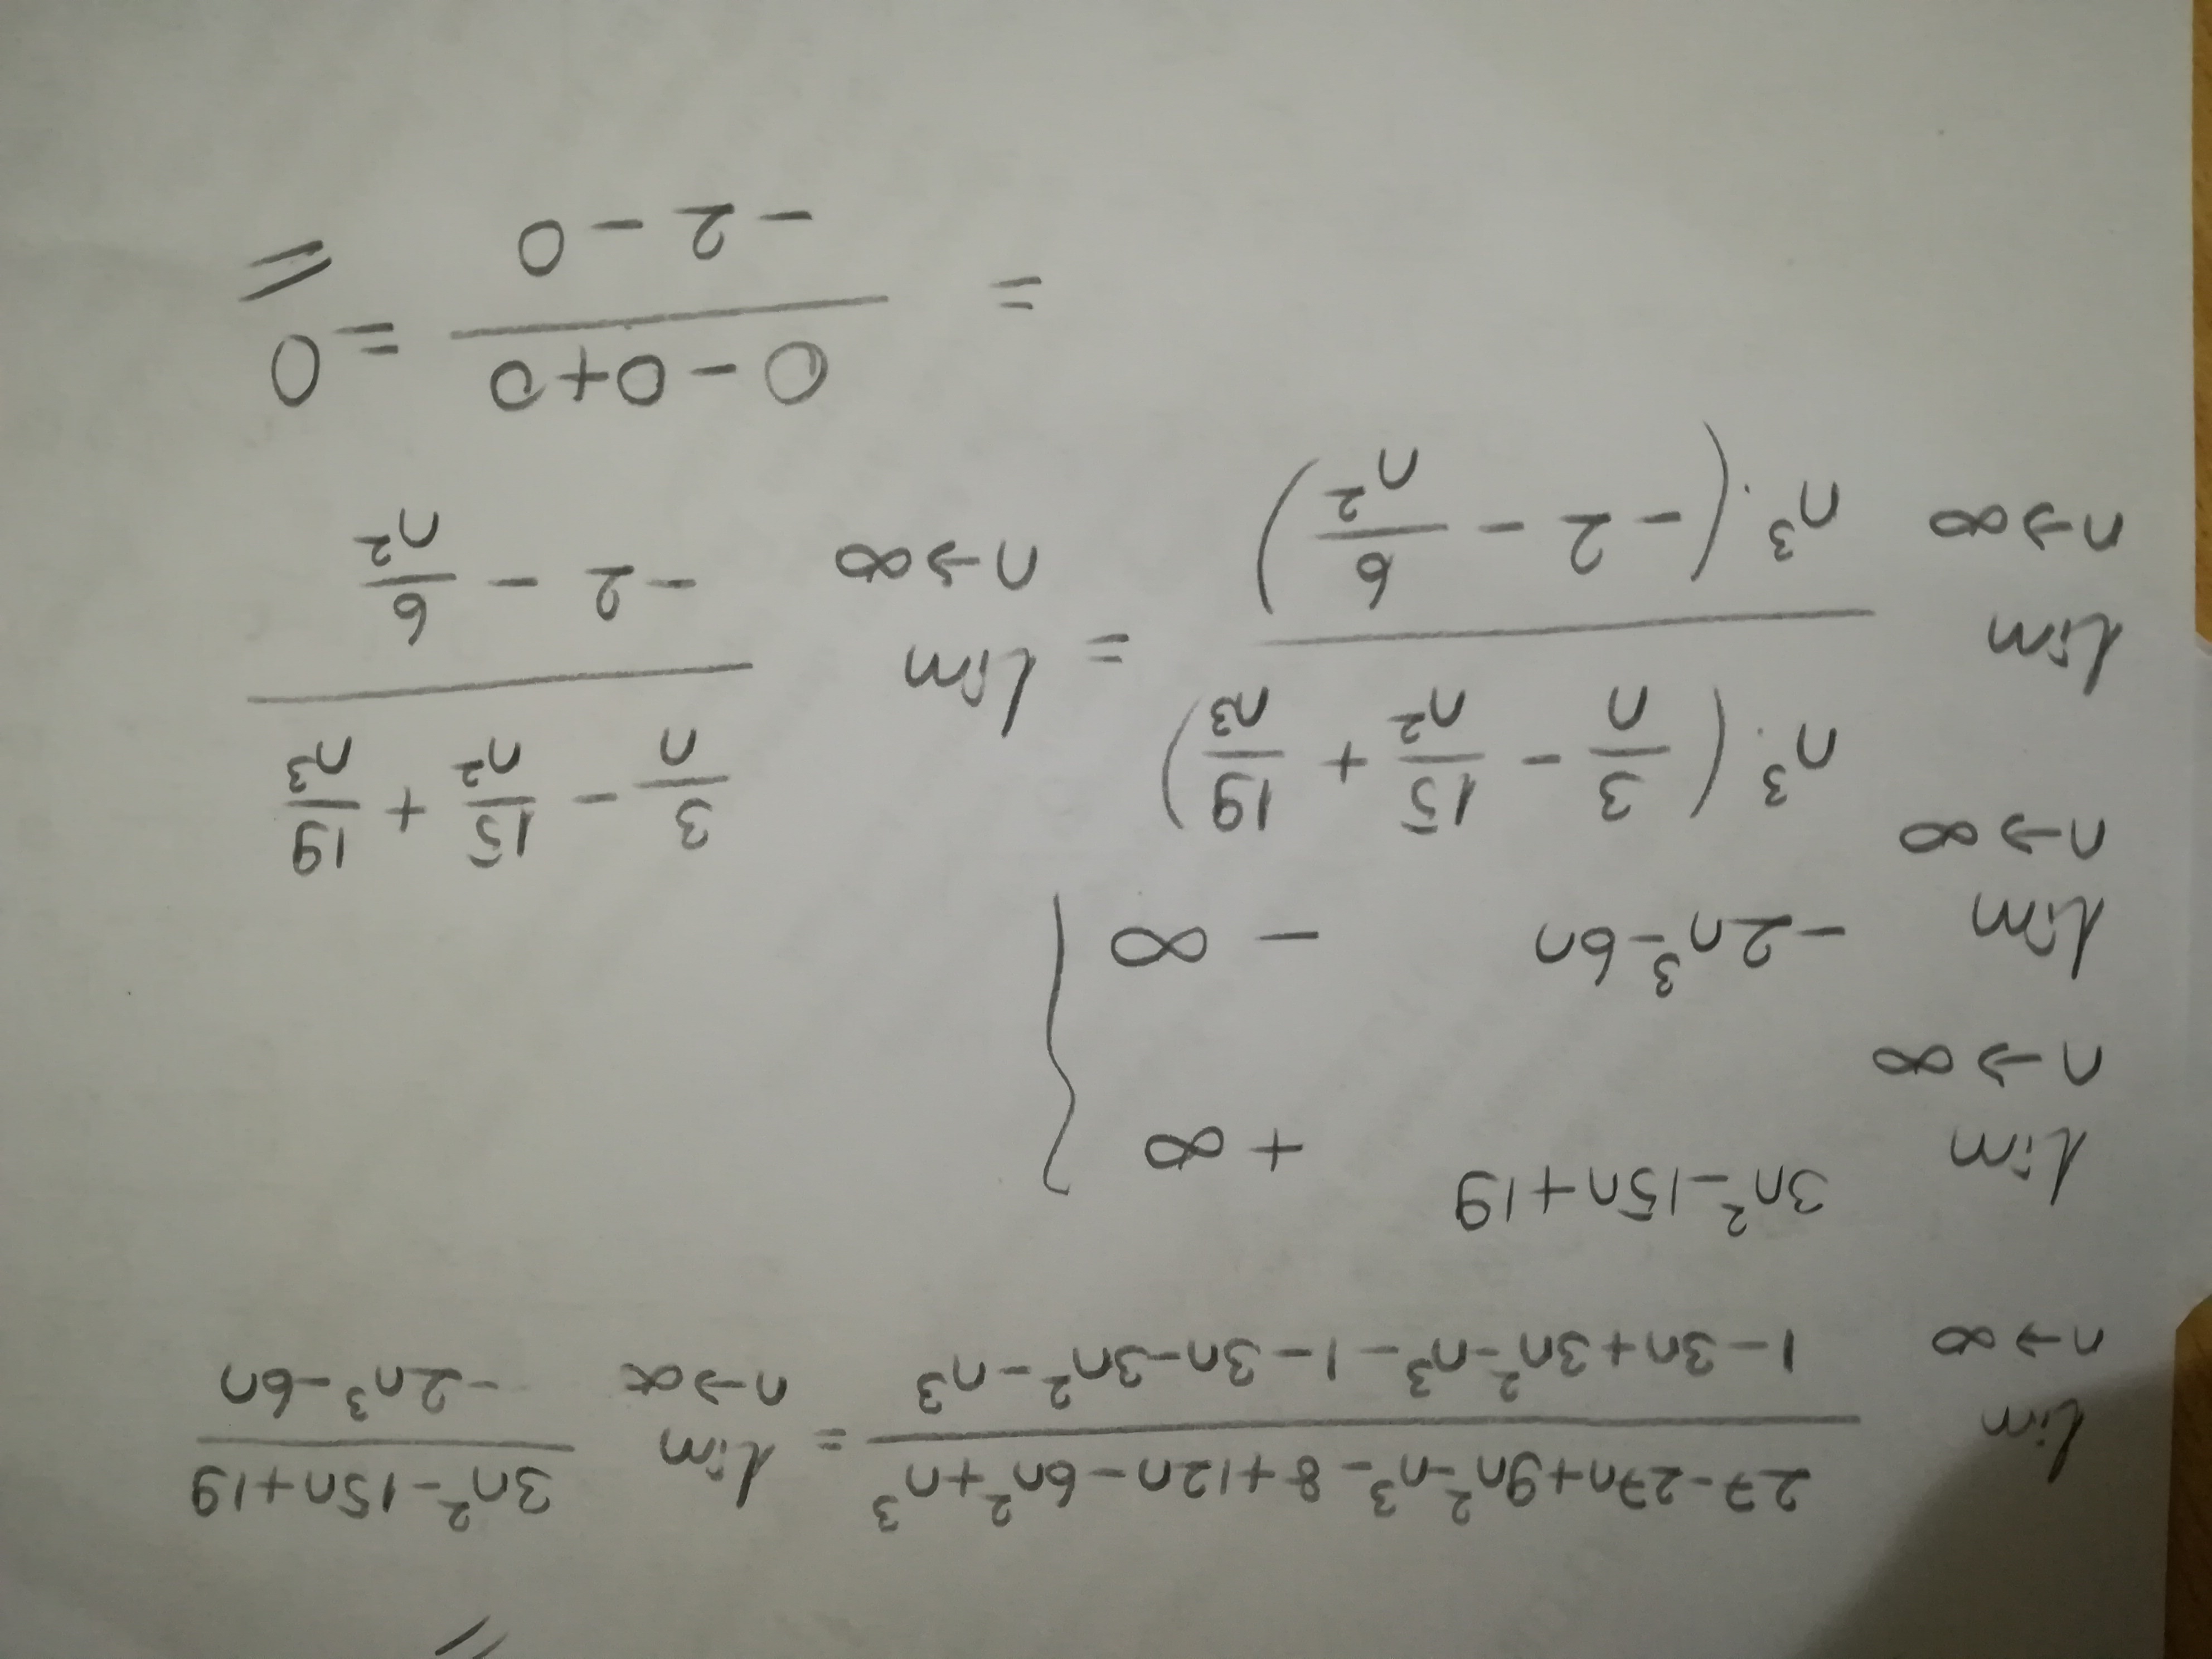 lim n→∞ (27-27n+9n²-n³-8+12n-6n²+n³)/(1-3n+3n²-n³-1-3n-3n²-n³) = lim n→∝ (3n²-15n+19)/(-2n³-6n)
lim n→∞ 3n²-15n+19 +∞
lim n→∞ -2n³-6n -∞
lim n→∞ n³·(3/n - 15/n² + 19/n³)/n³·(-2 - 6/n²) = lim n→∞ (3/n - 15/n² + 19/n³)/(-2 - 6/n²)
= (0-0+0)/(-2-0) = 0